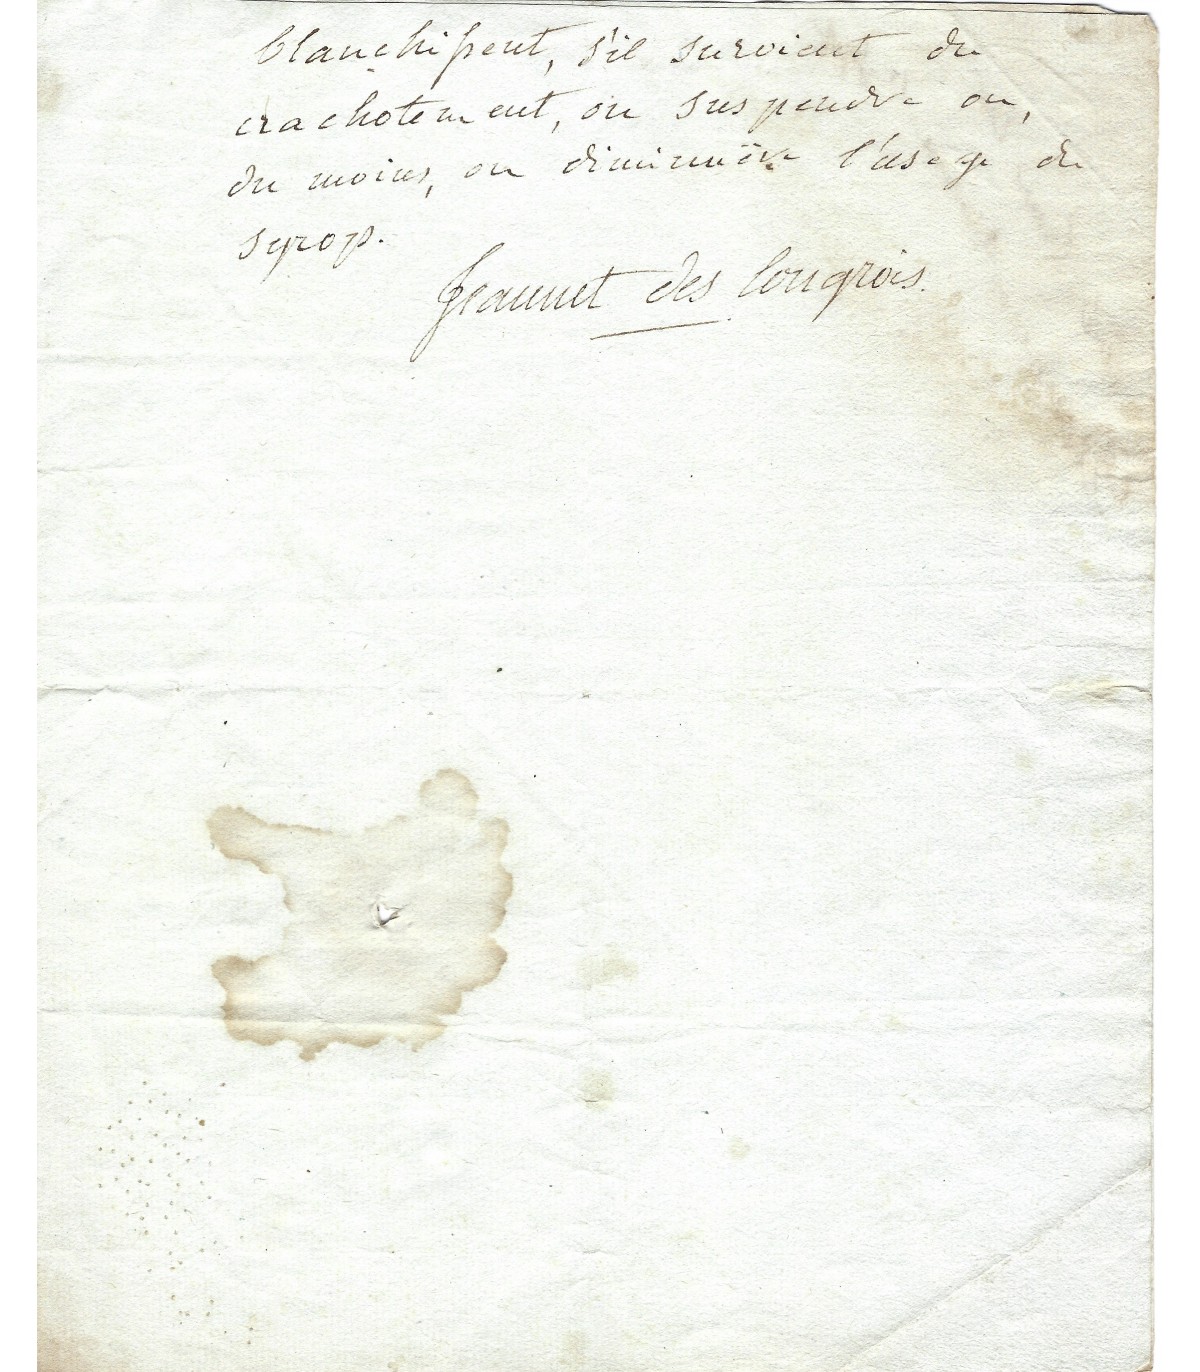 blanchissent, s'il survient du
crachotement, on suspendre ou,
du moins, on diminuëra l'usage du
syrop.
Jeannet des Longrois.